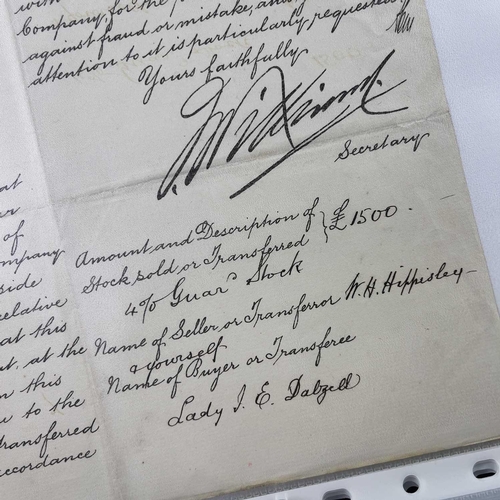 with
Company, for the
against fraud or mistake, and
attention to it is particularly requested
Yours faithfully
Secretary
Amount and Description of
Stock sold or Transferred } £1500 -
4% Guard Stock
Name of Seller or Transferror W. H. Hippisley
& yourself
Name of Buyer or Transferee
Lady I. E. Dalzell
at
of
ompany
side
relative
at this
at the
this
to the
ransferred
ccordance